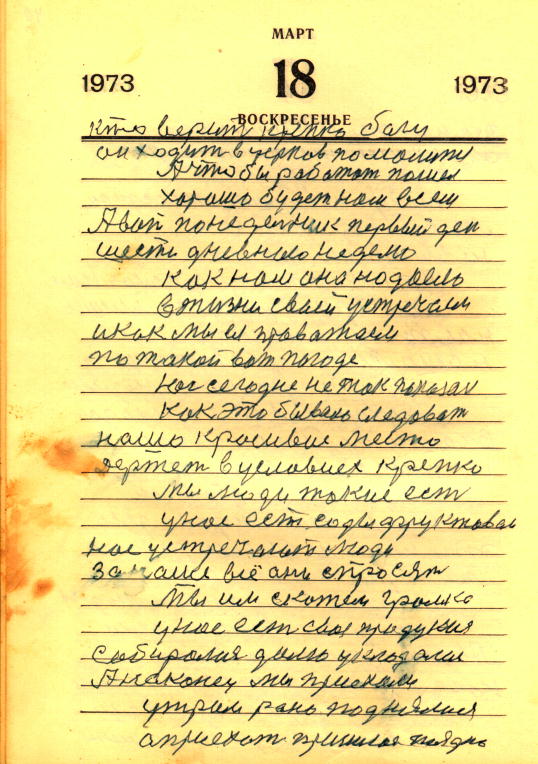 МАРТ
1973 18 1973
ВОСКРЕСЕНЬЕ
кто верит крепко богу
он ходит в церков помолитц
А что бы работат пошел
хорошо будет нам всем
А вот понеделник первый ден
шести дневного недело
как нам она
в жизни своей устречаем
и как мы ея праважаем
по такой вот погоде
нас сегодне не так показал
как это бы следоват
нашо красивае место
держет в условиех крепко
мы люди такие ест
у нас ест сады фруктовай
нас устречают люди
за наше всё ани спросят
Мы им скажем громко
у нас ест своя продукия
Собиралис долго укладали
А наконец мы приехали
утрам рано поднялися
а приехат пришлос поздно